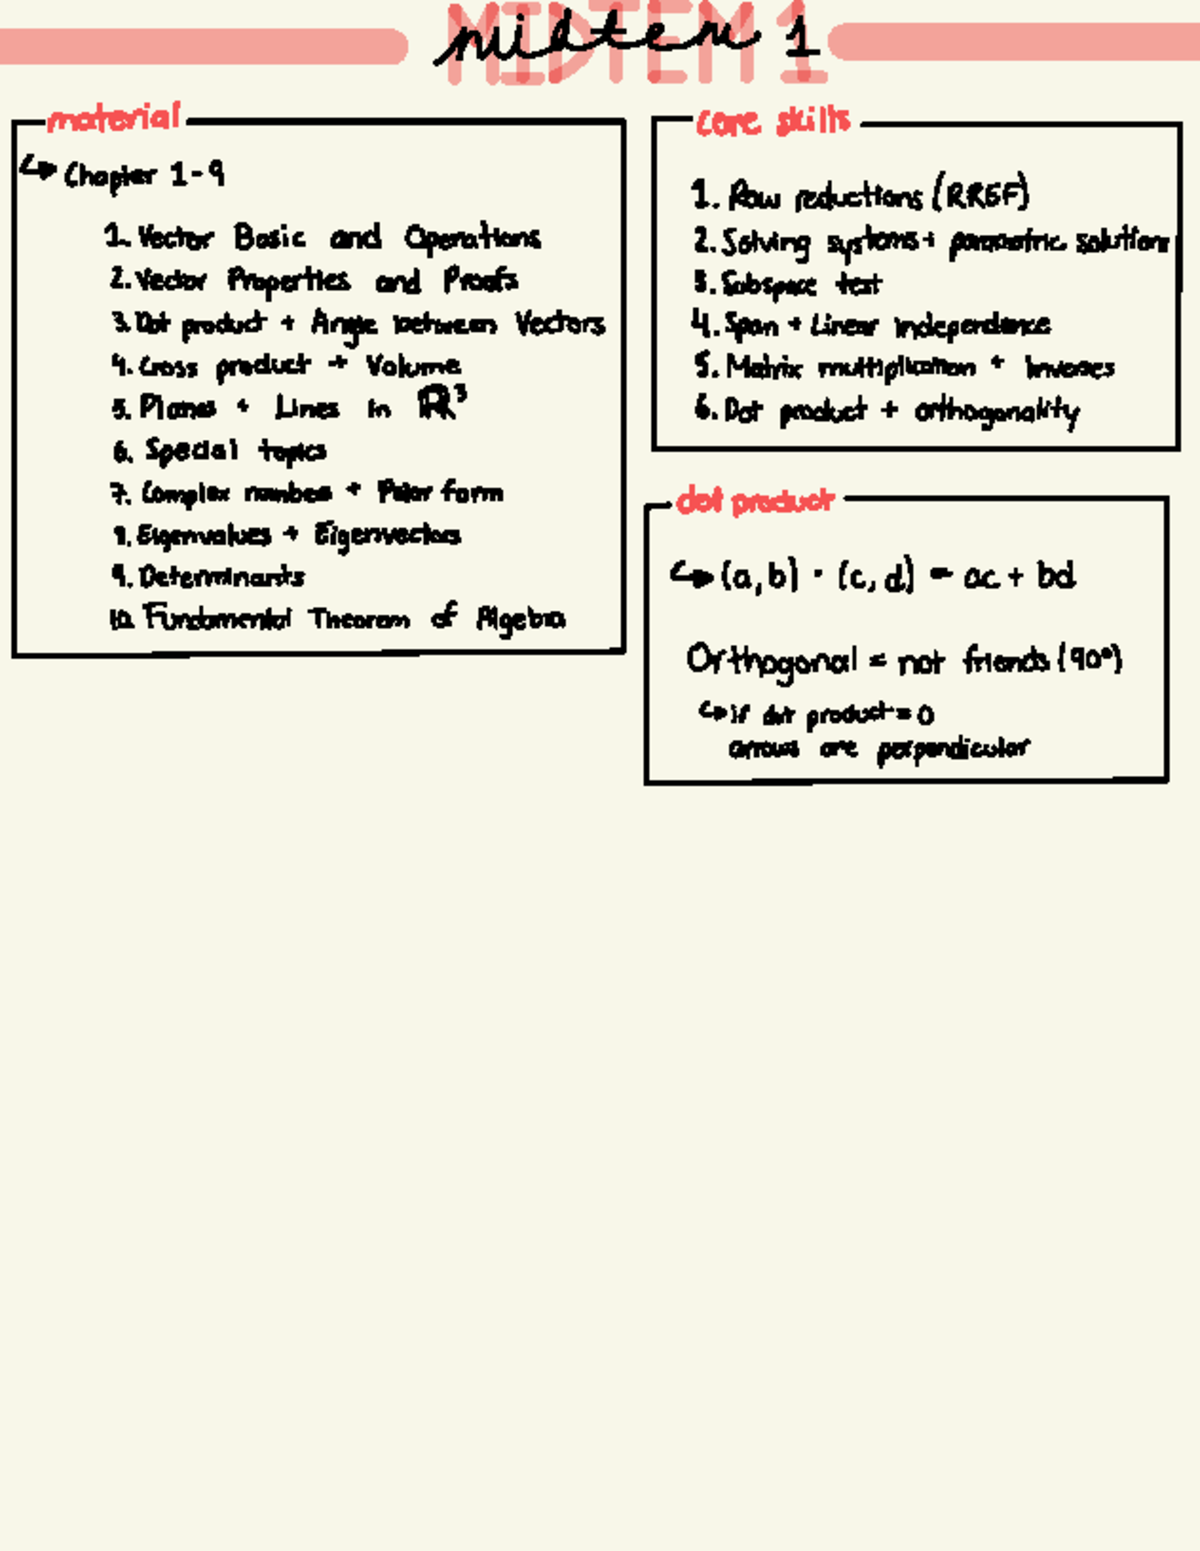 MIDTEM 1
midtem 1
material
Chapter 1-9
1. Vector Basic and Operations
2. Vector Properties and Proofs
3. Dot product + Angle between Vectors
4. Cross product + Volume
5. Planes + Lines in ℝ³
6. Special topics
7. Complex numbers + Polar form
9. Eigenvalues + Eigenvectors
9. Determinants
10. Fundamental Theorem of Algebra
core skills
1. Row reductions (RREF)
2. Solving systems + parametric solutions
3. Subspace test
4. Span + Linear independence
5. Matrix multiplication + Inverses
6. Dot product + orthogonality
dot product
(a, b) · (c, d) = ac + bd
Orthogonal = not friends (90°)
if dot product = 0
arrows are perpendicular